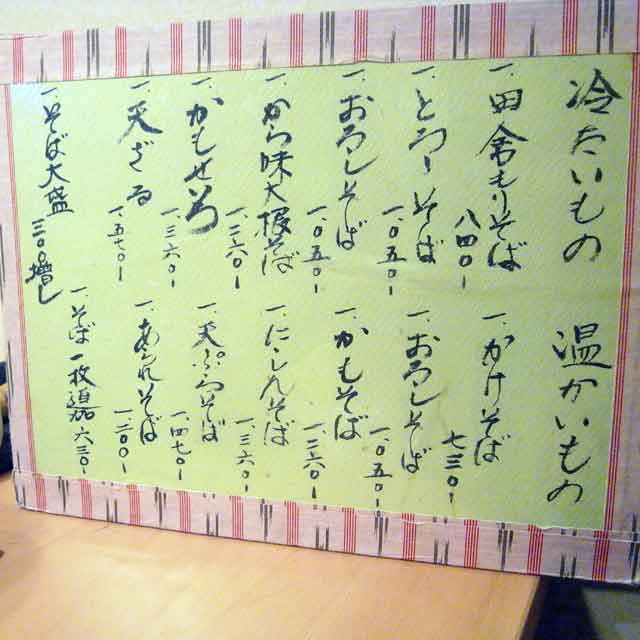 冷たいもの
一、田舎もりそば 八四〇ー
一、とろろそば 一、〇五〇ー
一、おろしそば 一、〇五〇ー
一、から味大根そば 一、二六〇ー
一、かもせいろ 一、三六〇ー
一、天ざる 一、五七〇ー
一、そば大盛 三〇〇増し
温かいもの
一、かけそば 七三〇ー
一、おろしそば 一、〇五〇ー
一、かもそば 一、三六〇ー
一、にしんそば 一、三六〇ー
一、天ぷらそば 一、四七〇ー
一、あられそば 一、二〇〇ー
一、そば一枚追加 六三〇ー